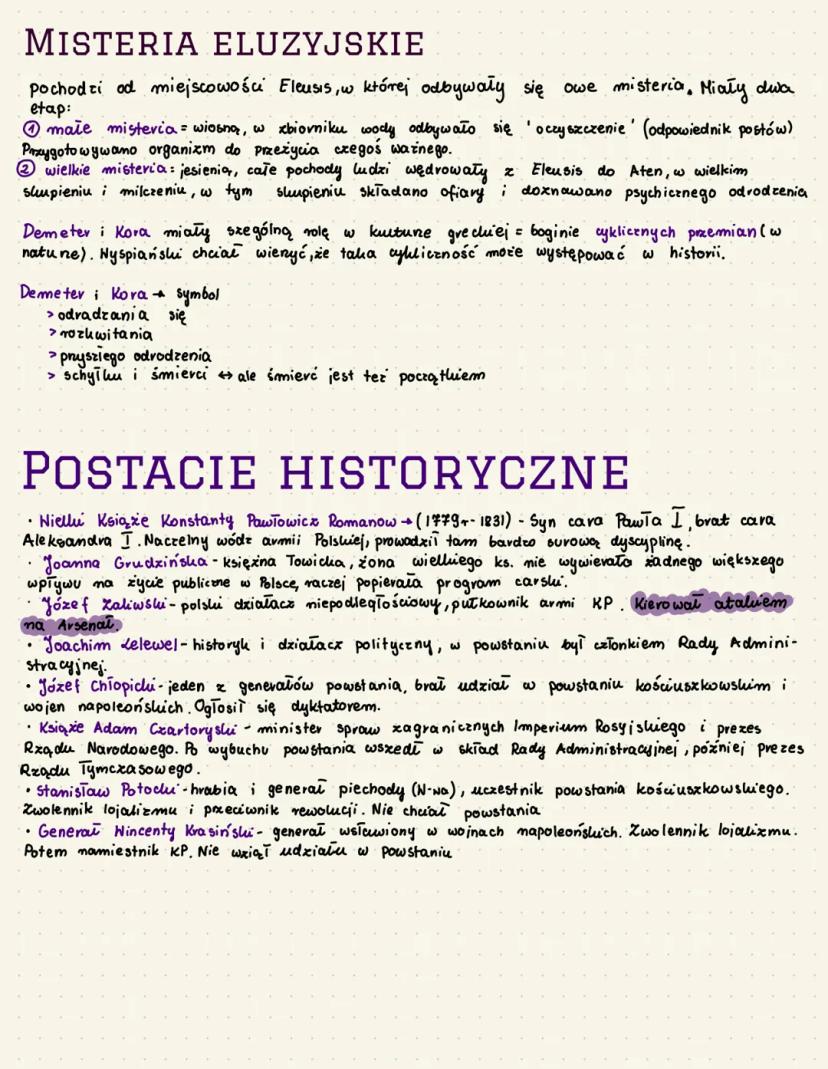 MISTERIA ELUZYJSKIE
pochodzi od miejscowości Eleusis, w której odbywały się owe misteria. Miały dwa
etap:
① małe misteria = wiosną, w zbiorniku wody odbywało się 'oczyszczenie' (odpowiednik postów)
Przygotowywano organizm do przeżycia czegoś ważnego.
② wielkie misteria: jesienią, całe pochody ludzi wędrowały z Eleusis do Aten, w wielkim
skupieniu i milczeniu, w tym skupieniu składano ofiary i doznawano psychicznego odrodzenia
Demeter i Kora miały szególną rolę w kulturze greckiej = boginie cyklicznych przemian (w
naturze). Wyspiański chciał wierzyć, że taka cykliczność może występować w historii.
Demeter i Kora → symbol
> odradzania się
> rozkwitania
> przyszłego odrodzenia
> schyłku i śmierci ↔ ale śmierć jest też początkiem
POSTACIE HISTORYCZNE
· Wielki Książe Konstanty Pawłowicz Romanow → (1779r - 1831) - Syn cara Pawła I, brat cara
Aleksandra I. Naczelny wódz armii Polskiej, prowadził tam bardzo surową dyscyplinę.
· Joanna Grudzińska - księżna Łowicka, żona wielkiego ks. nie wywierała żadnego większego
wpływu na życie publiczne w Polsce, raczej popierała program carski.
· Józef Zaliwski - polski działacz niepodległościowy, pułkownik armi KP. Kierował atakiem
na Arsenał.
· Joachim Lelewel - historyk i działacz polityczny, w powstaniu był członkiem Rady Admini-
stracyjnej.
· Józef Chłopicki - jeden z generałów powstania, brał udział w powstaniu kościuszkowskim i
wojen napoleońskich. Ogłosił się dyktatorem.
· Książe Adam Czartoryski - minister spraw zagranicznych Imperium Rosyjskiego i prezes
Rządu Narodowego. Po wybuchu powstania wszedł w skład Rady Administracyjnej, później prezes
Rządu Tymczasowego.
· Stanisław Potocki - hrabia i generał piechoty (W-wa), uczestnik powstania kościuszkowskiego.
Zwolennik lojalizmu i przeciwnik rewolucji. Nie chciał powstania
· Generał Wincenty Krasiński - generał wsławiony w wojnach napoleońskich. Zwolennik lojalizmu.
Potem namiestnik KP. Nie wziął udziału w powstaniu